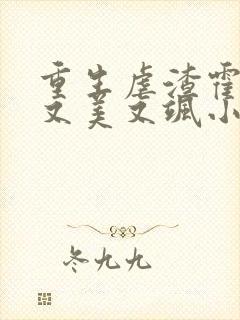 重生虐渣霍
又美又飒小
冬九九